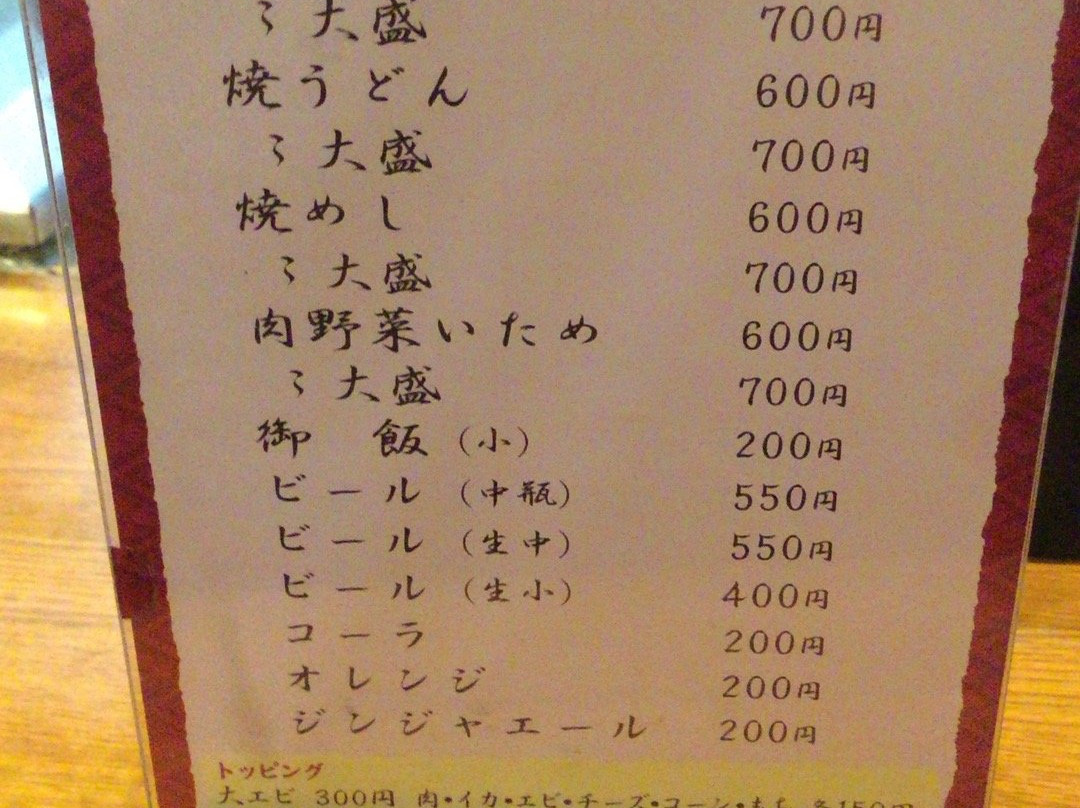 〃大盛 700円
焼うどん 600円
〃大盛 700円
焼めし 600円
〃大盛 700円
肉野菜いため 600円
〃大盛 700円
御 飯(小) 200円
ビール(中瓶) 550円
ビール(生中) 550円
ビール(生小) 400円
コーラ 200円
オレンジ 200円
ジンジャエール 200円
トッピング
大エビ 300円 肉・イカ・エビ・チーズ・コーン・もち 各150円